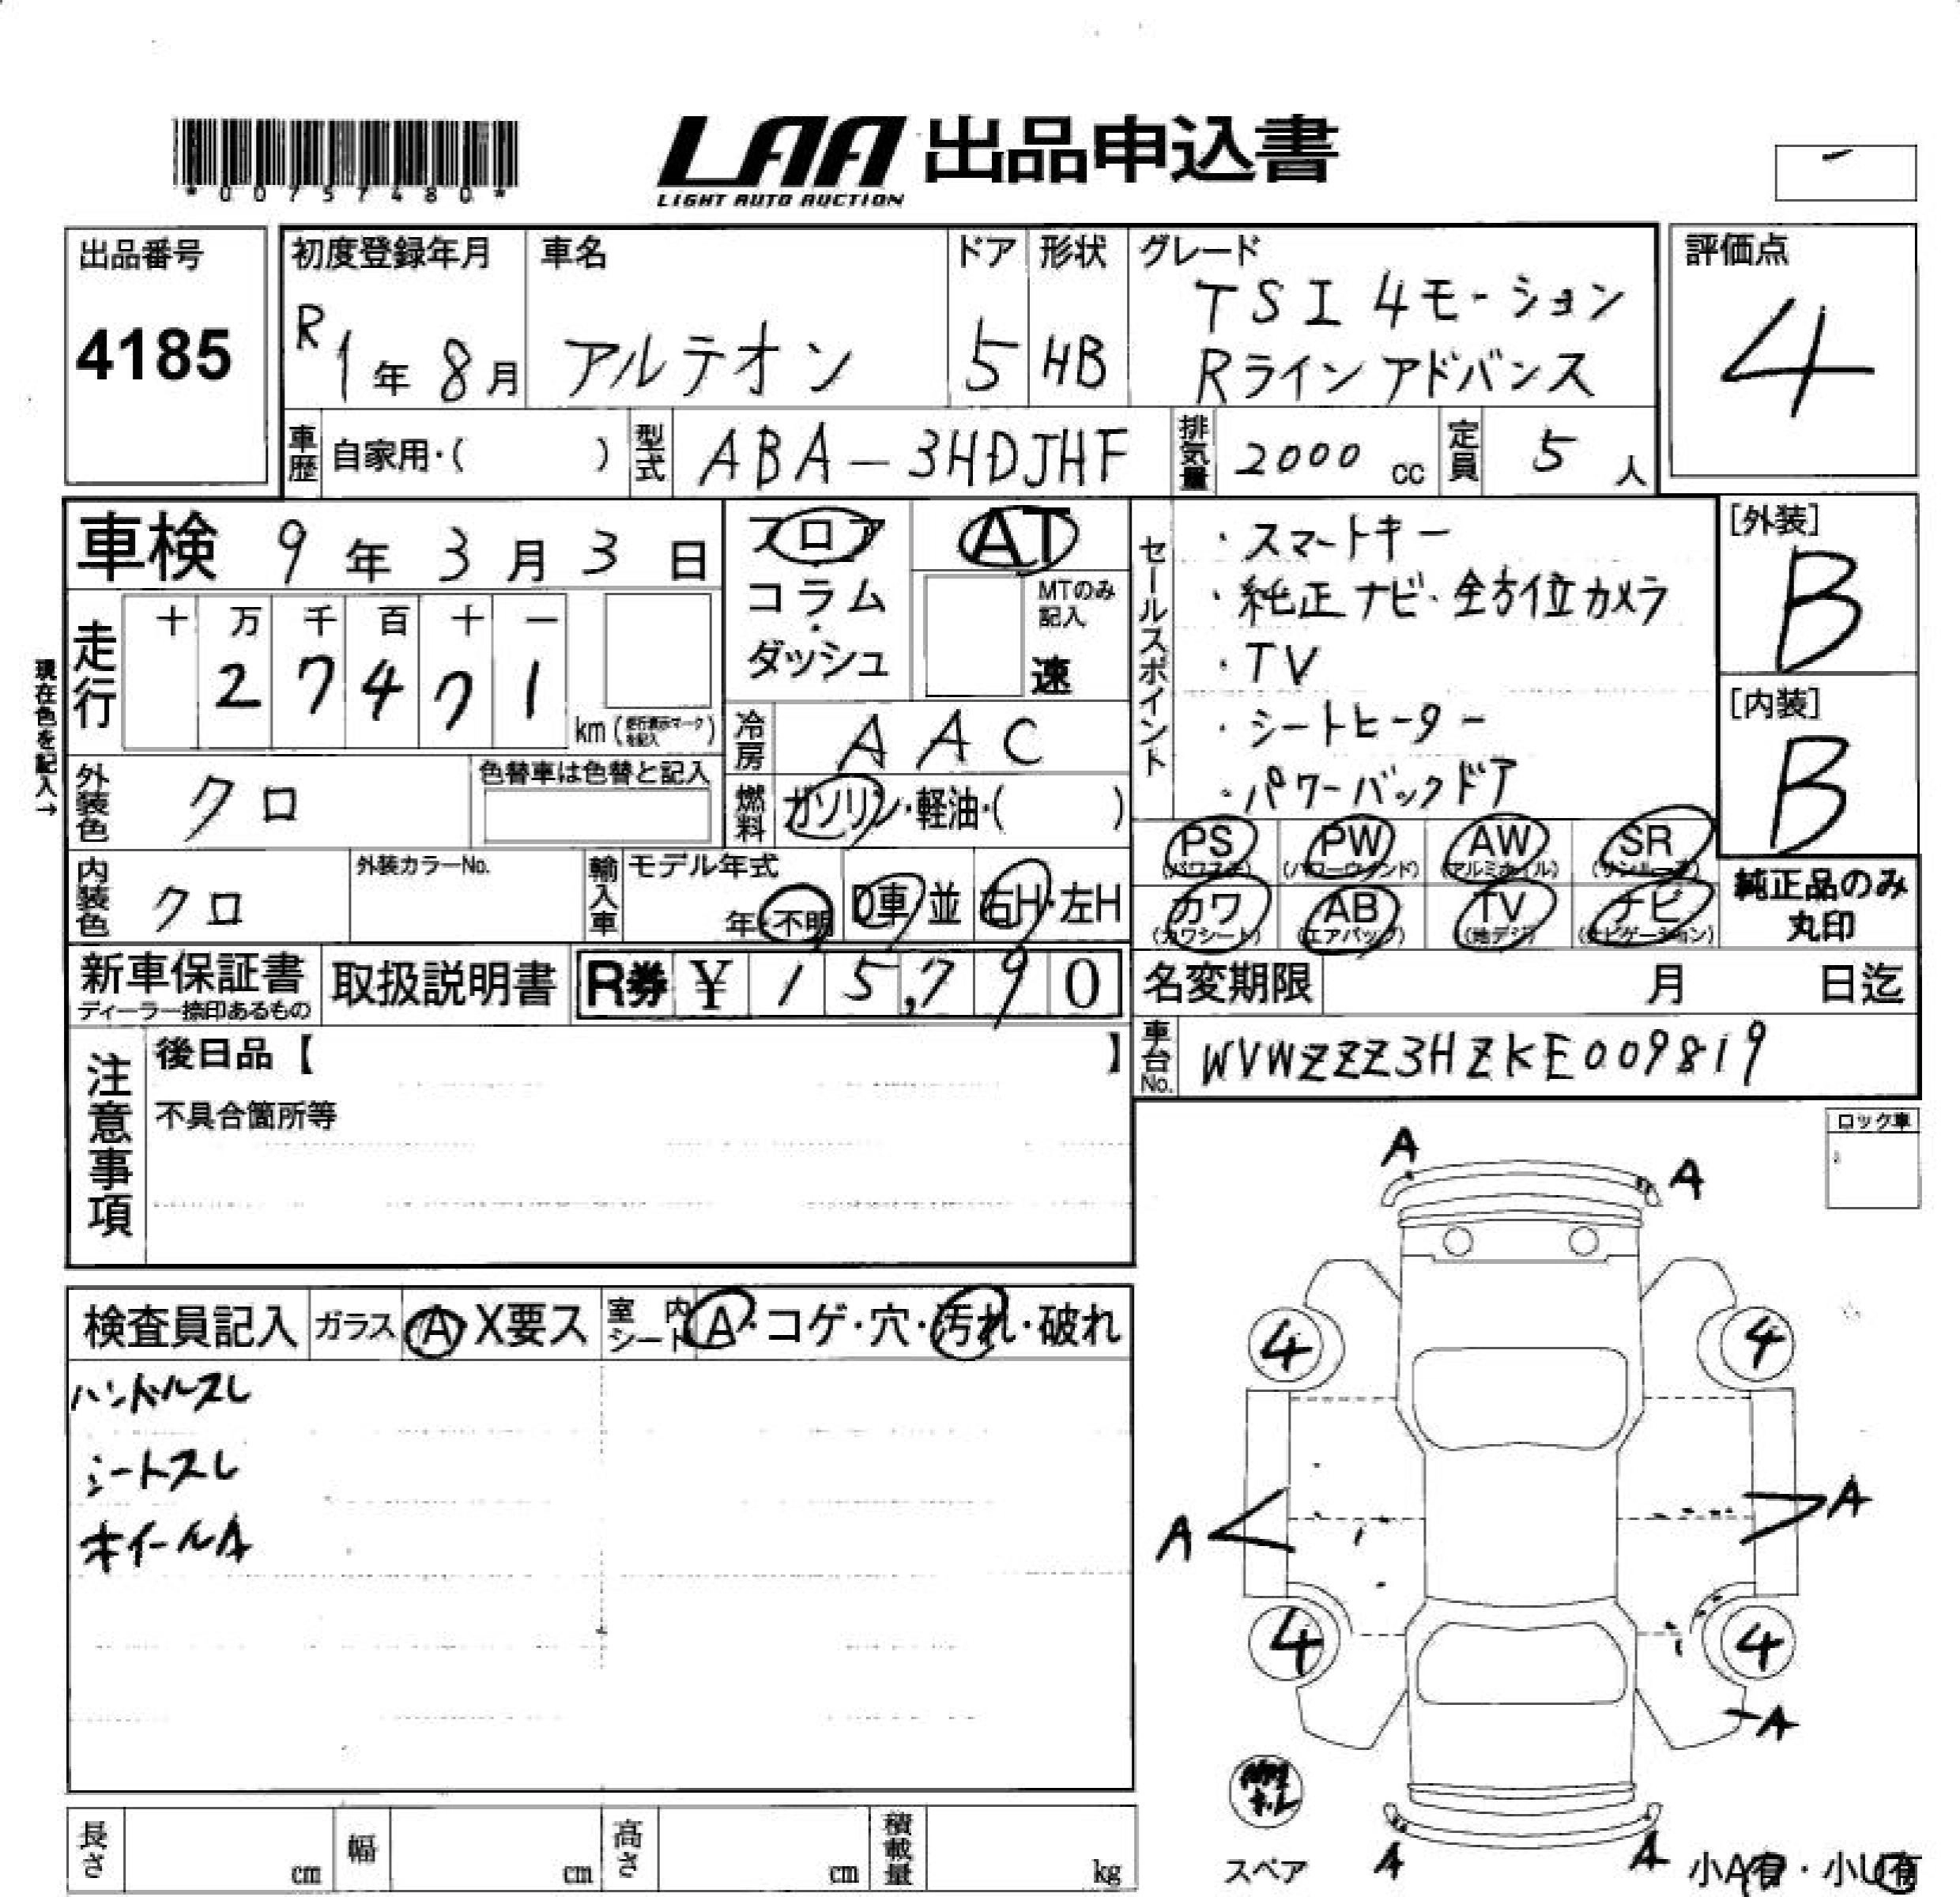 *00757480*
LAA 出品申込書
LIGHT AUTO AUCTION
出品番号
4185
初度登録年月
R1年8月
車名
アルテオン
ドア
5
形状
HB
グレード
TSI 4モーション
Rラインアドバンス
評価点
4
車歴 自家用・( )
型式 ABA-3HDJHF
排気量 2000 cc
定員 5 人
車検 9年3月3日
フロア
コラム
・
ダッシュ
AT
MTのみ
記入
速
現在色を記入→
走行
十 万 千 百 十 一
2 7 4 7 1
km
冷房 AAC
燃料 ガソリン・軽油・( )
外装色 クロ
色替車は色替と記入
内装色 クロ
外装カラーNo.
輸入車
モデル年式
年・不明
D車 並
右H・左H
セールスポイント
・スマートキー
・純正ナビ・全方位カメラ
・TV
・シートヒーター
・パワーバックドア
[外装]
B
[内装]
B
PS
(パワステ)
PW
(パワーウインド)
AW
(アルミホイル)
SR
(サンルーフ)
カワ
(カワシート)
AB
(エアバッグ)
TV
(地デジ)
ナビ
(ナビゲーション)
純正品のみ
丸印
新車保証書
ディーラー捺印あるもの
取扱説明書
R券 ¥ 15,790
名変期限 月 日迄
車台No. WVWZZZ3HZKE009819
注意事項
後日品【 】
不具合箇所等
ロック車
検査員記入
ガラス A X要ス
室内シート A・コゲ・穴・汚れ・破れ
ハンドルスレ
シートスレ
ホイールA
A
A
4
4
A
A
4
4
A
A
A
スペア
小A有・小U有
長さ cm
幅 cm
高さ cm
積載量 kg